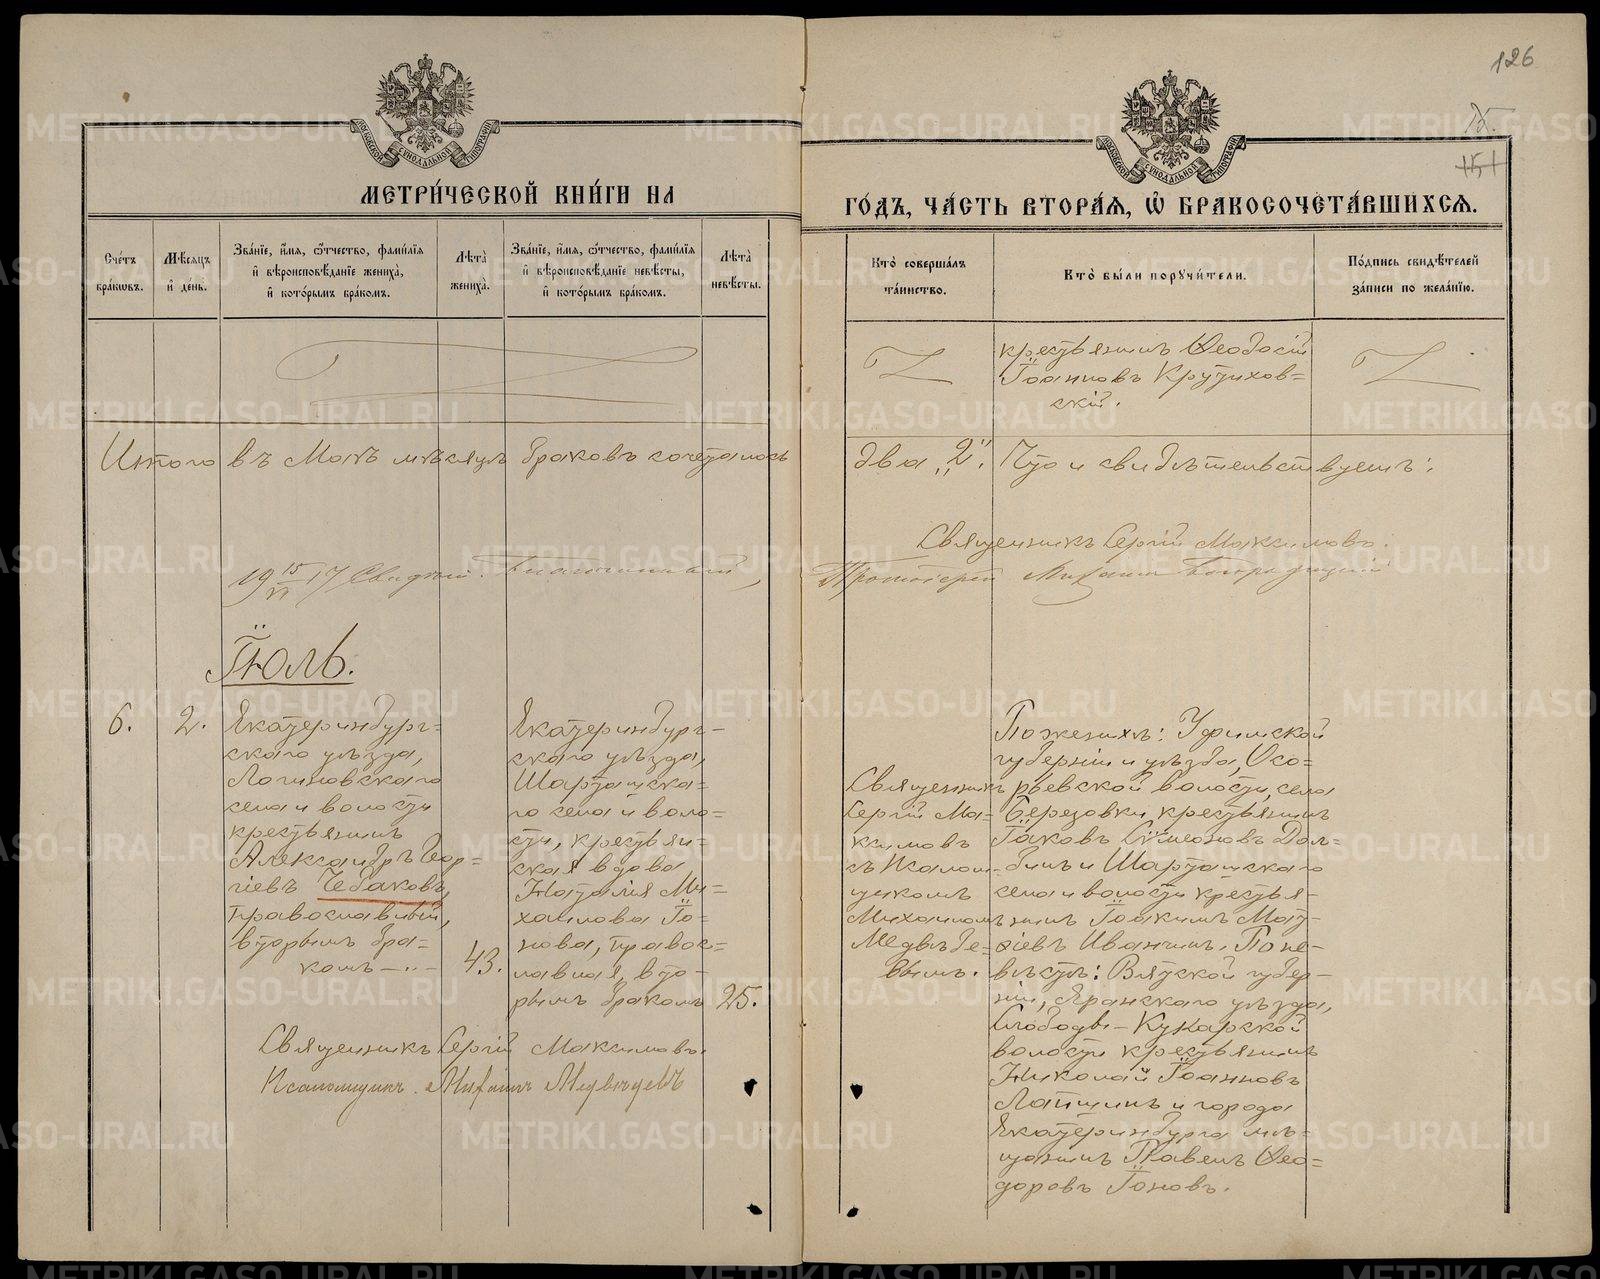 126
15.
151
МЕТРИ́ЧЕСКОЙ КНИ́ГИ НА
ГО́ДЪ, ЧА́СТЬ ВТОРА́Я, Ѿ БРАКОСОЧЕТА́ВШИХСЯ.
Сче́тъ
бра́ковъ.
Мѣ́сяцъ
и де́нь.
Зва́нїе, и́мя, о́тчество, фами́лїя
и вѣроисповѣ́данїе жениха̀,
и кото́рымъ бра́комъ.
Лѣ́та
жениха̀.
Зва́нїе, и́мя, о́тчество, фами́лїя
и вѣроисповѣ́данїе невѣ́сты,
и кото́рымъ бра́комъ.
Лѣ́та
невѣ́сты.
Кто̀ соверша́лъ
та́инство.
Кто̀ бы́ли поручи́тели.
По́дпись свидѣ́телей
за́писи по жела́нїю.
крестьянинъ Ѳеодосій
Іоанновъ Крутихов=
скій.
Итого въ Маѣ мѣсяцѣ браковъ сочеталось
два „2". Что и свидѣтельствуетъ:
Священникъ Сергій Максимовъ.
19 15/VI 17
Протоіерей Михаилъ
Іюль.
6.
2.
Екатеринбург=
скаго уѣзда,
Логиновскаго
села и волости
крестьянинъ
Александръ Геор=
гіевъ Чебаковъ,
православный,
вторымъ бра=
комъ—..-
43.
Екатеринбург-
скаго уѣзда,
Шарташска=
го села и воло=
сти, крестьян-
ская вдова
Наталія Ми=
хаилова Іо=
нова, правос=
лавная, вто-
рымъ бракомъ
25.
Священникъ
Сергій Мак-
симовъ
съ Псалом-
щикомъ
Михаиломъ
Медвѣде-
вымъ.
По женихѣ: Уфимской
губерніи и уѣзда, Осо=
рьевской волости, села
Березовки крестьянинъ
Іаковъ Сѵмеоновъ Дол-
бинъ и Шарташскаго
села и волости крестья-
нинъ Іоакимъ Мат-
ѳіевъ Иванинъ. По не-
вѣстѣ: Вятской губер-
ніи, Яранскаго уѣзда,
Слободы-Кукарской
волости крестьянинъ
Николай Іоанновъ
Лапшинъ и города
Екатеринбурга мѣ-
щанинъ Павелъ Ѳео=
доровъ Іоновъ.
Священникъ Сергій Максимовъ.
Псаломщикъ Михаилъ Медвѣдевъ
METRIKI.GASO-URAL.RU